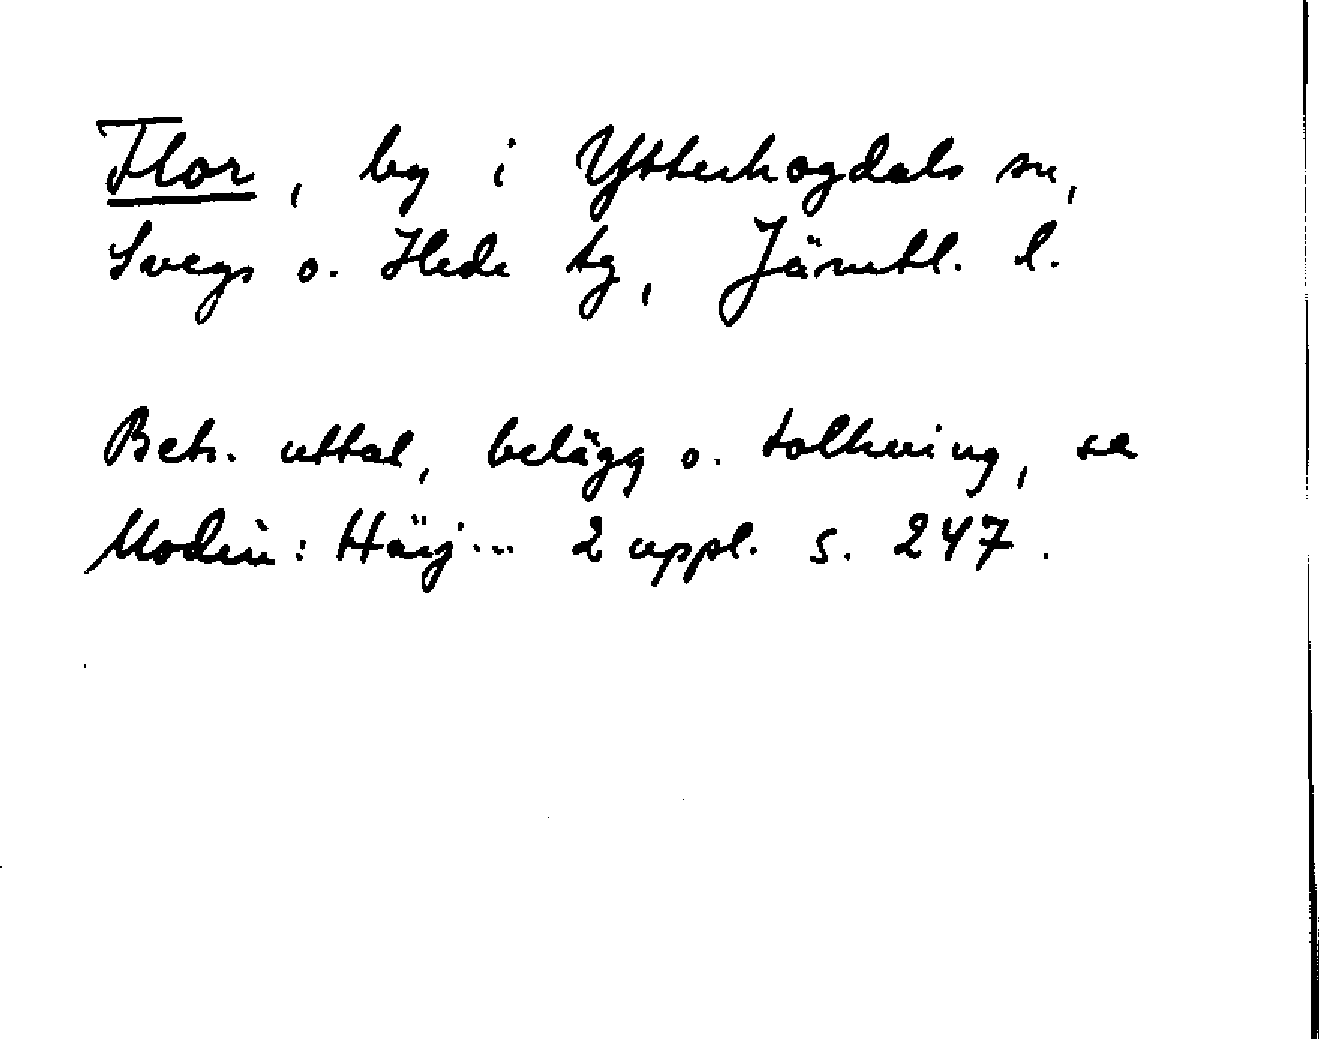 Flor, by i Ytterhogdals sn,
Svegs o. Hede tg, Jämtl. l.
Betr. uttal, belägg o. tolkning, se
Modin: Härj... 2 uppl. s. 247.